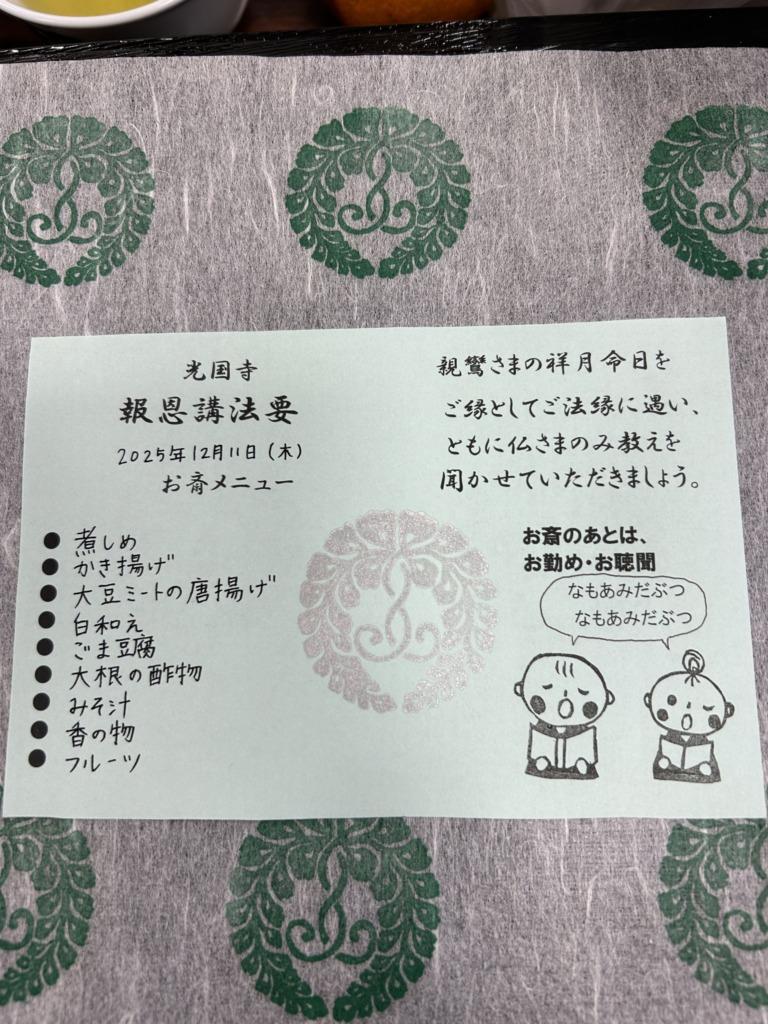 光国寺
報恩講法要
2025年12月11日（木）
お斎メニュー
● 煮しめ
● かき揚げ
● 大豆ミートの唐揚げ
● 白和え
● ごま豆腐
● 大根の酢物
● みそ汁
● 香の物
● フルーツ
親鸞さまの祥月命日を
ご縁としてご法縁に遇い、
ともに仏さまのみ教えを
聞かせていただきましょう。
お斎のあとは、
お勤め・お聴聞
なもあみだぶつ
なもあみだぶつ